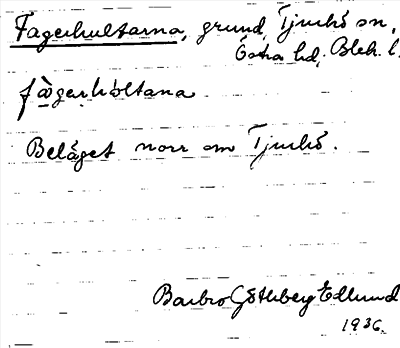 Fagerhultarna, grund, Tjurkö sn,
Östra hd, Blek. l.
fàgərhòltana
Beläget norr om Tjurkö.
Barbro Götherberg Edlund
1936.